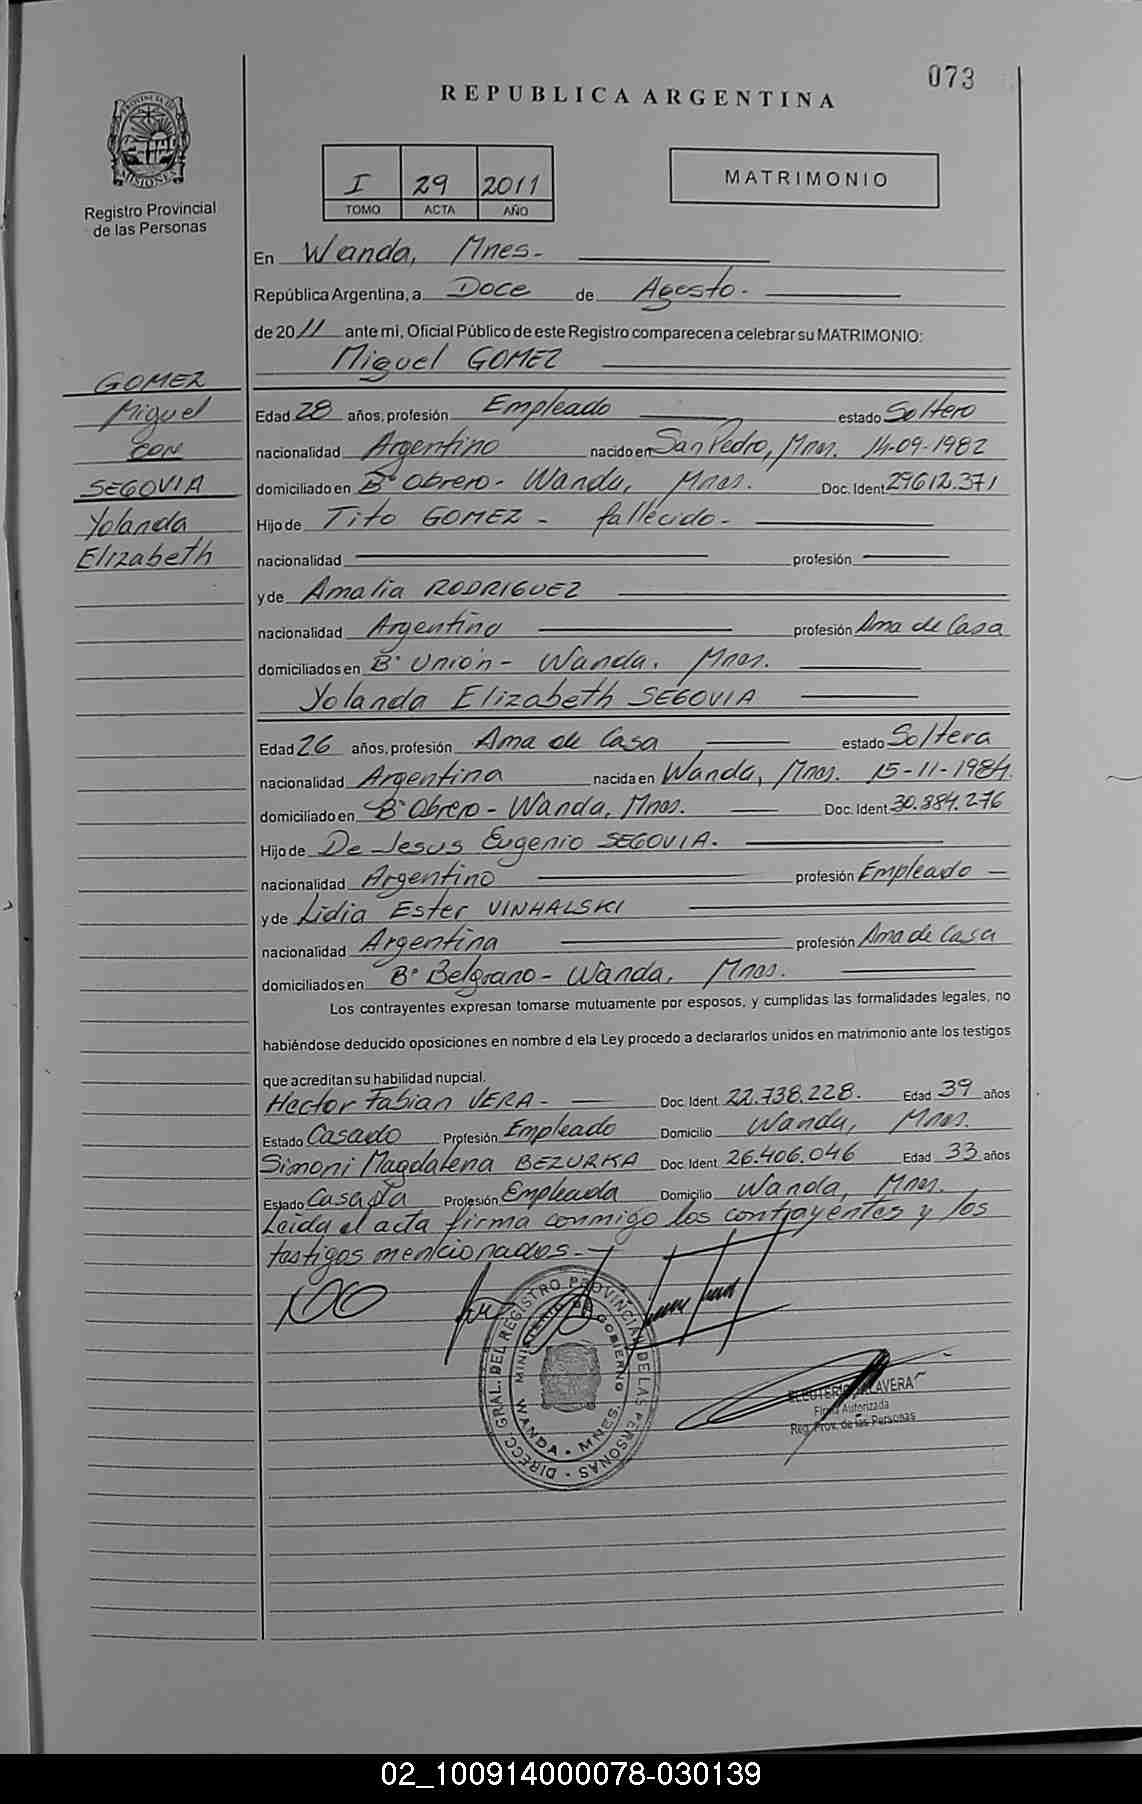 073
REPUBLICA ARGENTINA
PROVINCIA DE
MISIONES
Registro Provincial
de las Personas
I 29 2011
TOMO ACTA AÑO
MATRIMONIO
En Wanda, Mnes.
República Argentina, a Doce de Agosto.
de 2011 ante mi, Oficial Público de este Registro comparecen a celebrar su MATRIMONIO:
Miguel GOMEZ
GOMEZ
Miguel
CON
SEGOVIA
Yolanda
Elizabeth
Edad 28 años, profesión Empleado estado Soltero
nacionalidad Argentino nacido en San Pedro, Mnes. 14-09-1982
domiciliado en B° Obrero - Wanda, Mnes. Doc. Ident 29612.371
Hijo de Tito GOMEZ - fallecido -
nacionalidad profesión
y de Amalia RODRIGUEZ
nacionalidad Argentina profesión Ama de Casa
domiciliados en B° Unión - Wanda, Mnes.
Yolanda Elizabeth SEGOVIA
Edad 26 años, profesión Ama de Casa estado Soltera
nacionalidad Argentina nacida en Wanda, Mnes. 15-11-1984.
domiciliado en B° Obrero - Wanda, Mnes. Doc. Ident 30.884.276
Hijo de De Jesus Eugenio SEGOVIA.
nacionalidad Argentino profesión Empleado
y de Lidia Ester VINHALSKI
nacionalidad Argentina profesión Ama de Casa
domiciliados en B° Belgrano - Wanda, Mnes.
Los contrayentes expresan tomarse mutuamente por esposos, y cumplidas las formalidades legales, no
habiéndose deducido oposiciones en nombre d ela Ley procedo a declararlos unidos en matrimonio ante los testigos
que acreditan su habilidad nupcial.
Hector Fabian VERA - Doc. Ident. 22.738.228. Edad 39 años
Estado Casado Profesión Empleado Domicilio Wanda, Mnes.
Simoni Magdalena BEZURKA Doc. Ident 26.406.046 Edad 33 años
Estado Casada Profesión Empleada Domicilio Wanda, Mnes.
Leida el acta firma conmigo los contrayentes y los
testigos mencionados.-
DIRECC. GRAL. DEL REGISTRO PROVINCIAL DE LAS PERSONAS
MINISTERIO DE GOBIERNO
WANDA - MNES.
Firma Autorizada
Reg. Prov. de las Personas
02_100914000078-030139